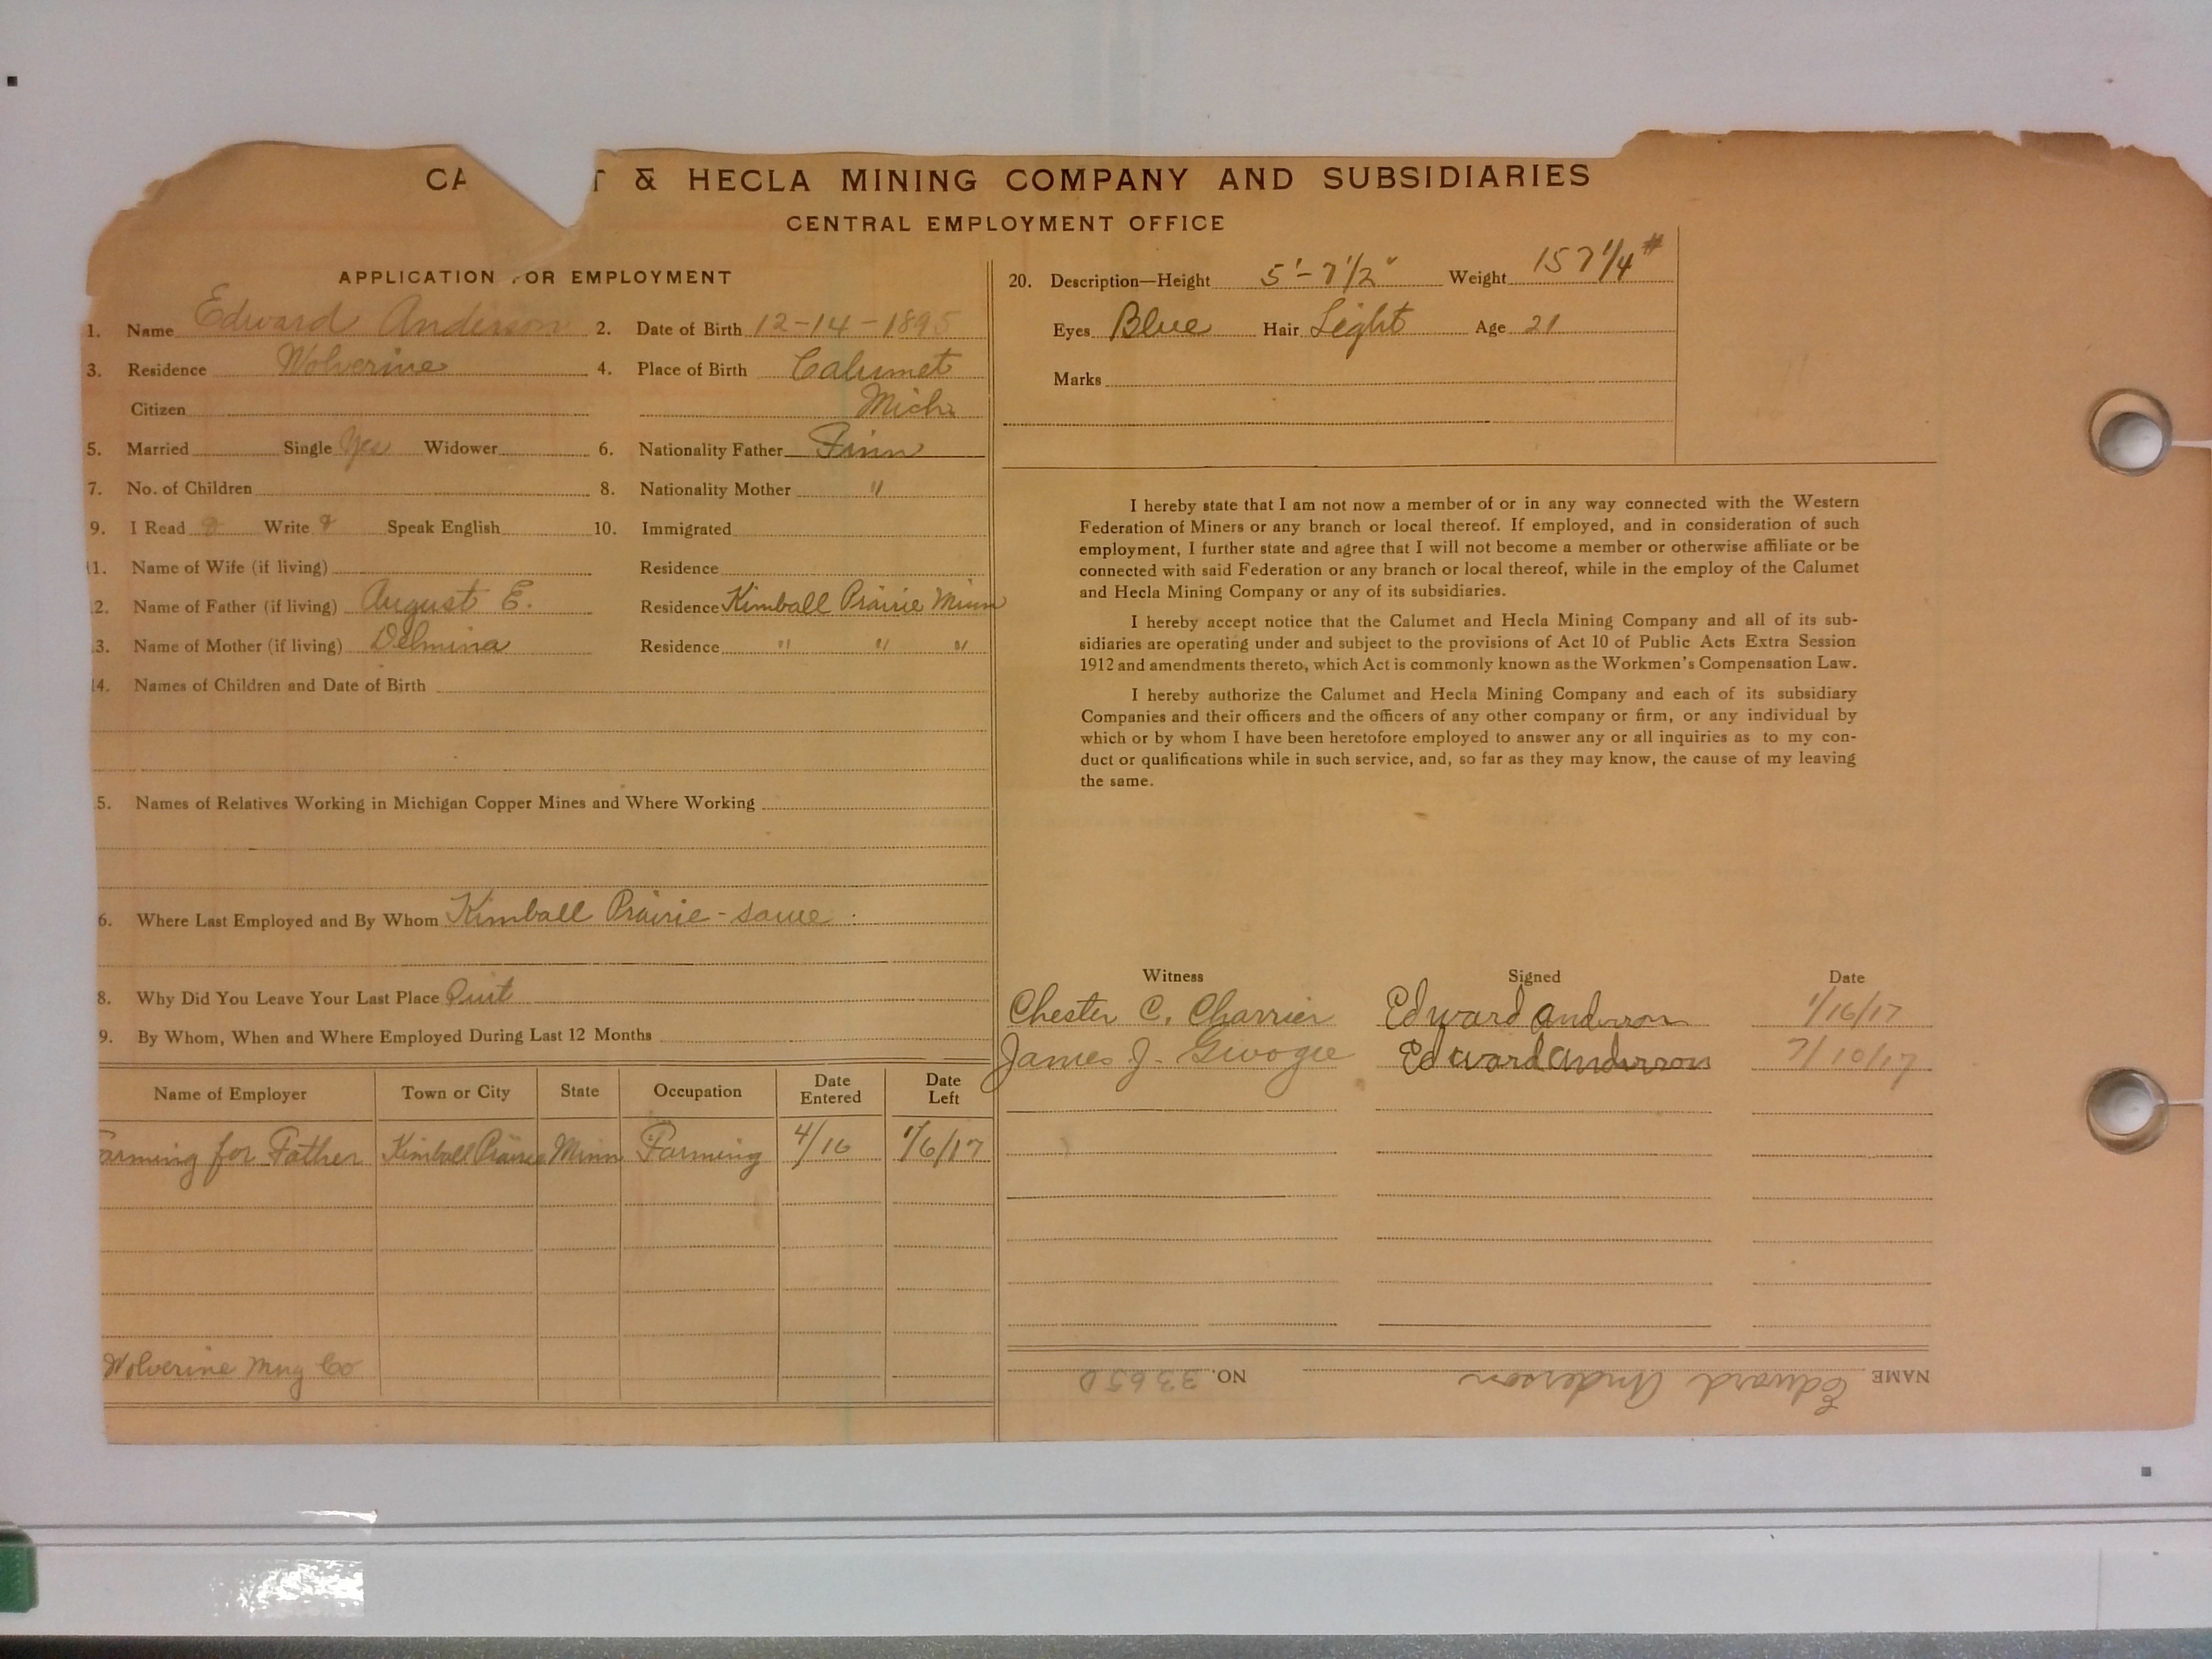 CA T & HECLA MINING COMPANY AND SUBSIDIARIES
CENTRAL EMPLOYMENT OFFICE
APPLICATION FOR EMPLOYMENT
1. Name Edward Anderson 2. Date of Birth 12-14-1895
3. Residence Wolverine 4. Place of Birth Calumet
Citizen Mich.
5. Married Single Yes Widower 6. Nationality Father Finn
7. No. of Children 8. Nationality Mother "
9. I Read Write Speak English 10. Immigrated
11. Name of Wife (if living) Residence
2. Name of Father (if living) August E. Residence Kimball Prairie Minn
3. Name of Mother (if living) Delmina Residence " " "
14. Names of Children and Date of Birth
5. Names of Relatives Working in Michigan Copper Mines and Where Working
6. Where Last Employed and By Whom Kimball Prairie - same
8. Why Did You Leave Your Last Place Quit
9. By Whom, When and Where Employed During Last 12 Months
Name of Employer Town or City State Occupation Date Entered Date Left
arming for Father Kimball Prairie Minn Farming 4/16 1/6/17
Wolverine Mng Co
20. Description—Height 5'-7 1/2" Weight 157 1/4 #
Eyes Blue Hair Light Age 21
Marks
I hereby state that I am not now a member of or in any way connected with the Western
Federation of Miners or any branch or local thereof. If employed, and in consideration of such
employment, I further state and agree that I will not become a member or otherwise affiliate or be
connected with said Federation or any branch or local thereof, while in the employ of the Calumet
and Hecla Mining Company or any of its subsidiaries.
I hereby accept notice that the Calumet and Hecla Mining Company and all of its sub-
sidiaries are operating under and subject to the provisions of Act 10 of Public Acts Extra Session
1912 and amendments thereto, which Act is commonly known as the Workmen's Compensation Law.
I hereby authorize the Calumet and Hecla Mining Company and each of its subsidiary
Companies and their officers and the officers of any other company or firm, or any individual by
which or by whom I have been heretofore employed to answer any or all inquiries as to my con-
duct or qualifications while in such service, and, so far as they may know, the cause of my leaving
the same.
Witness Signed Date
Chester C. Charrier Edward Anderson 1/16/17
James J. Edward Anderson 7/10/17
NAME Edward Anderson NO. 33650